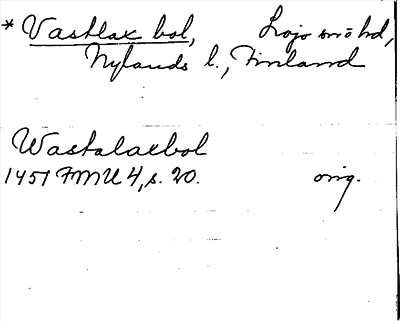 * Vastlax bol, Lojo snō hd,
Nylands l., Finland
Wastalaxbol
1451 FMU 4, s. 20. orig.